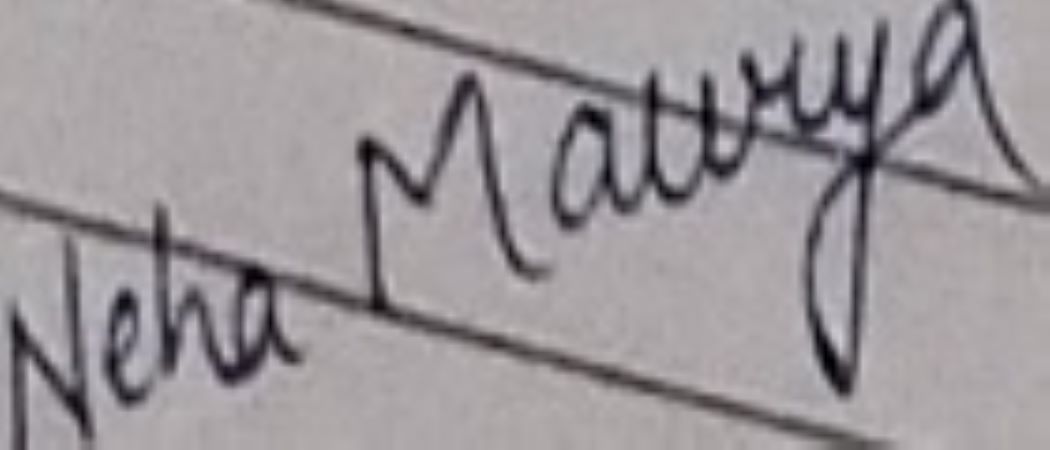 Neha Maurya